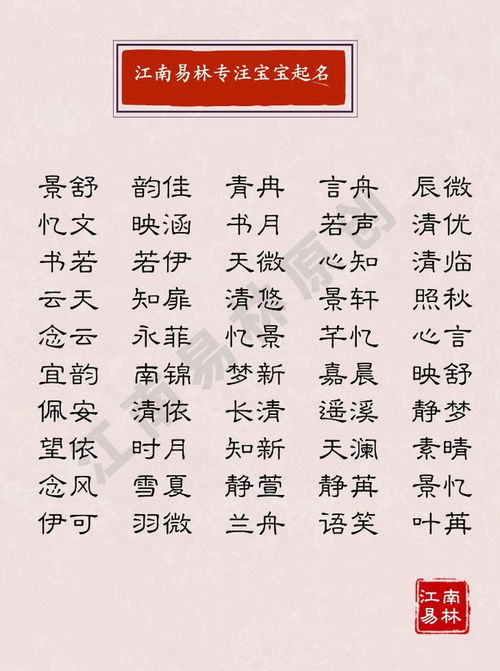 江南易林专注宝宝起名
景舒 韵佳 青冉 言舟 辰微
忆文 映涵 书月 若声 清优
书若 若伊 天微 心知 清临
云天 知扉 清悠 景轩 照秋
念云 永菲 忆景 芊忆 心言
宜韵 南锦 梦新 嘉晨 映舒
佩安 清依 长清 遥溪 静梦
望依 时月 知新 天澜 素晴
念风 雪夏 静萱 静苒 景忆
伊可 羽微 兰舟 语笑 叶苒
江南易林原创
江南
易林